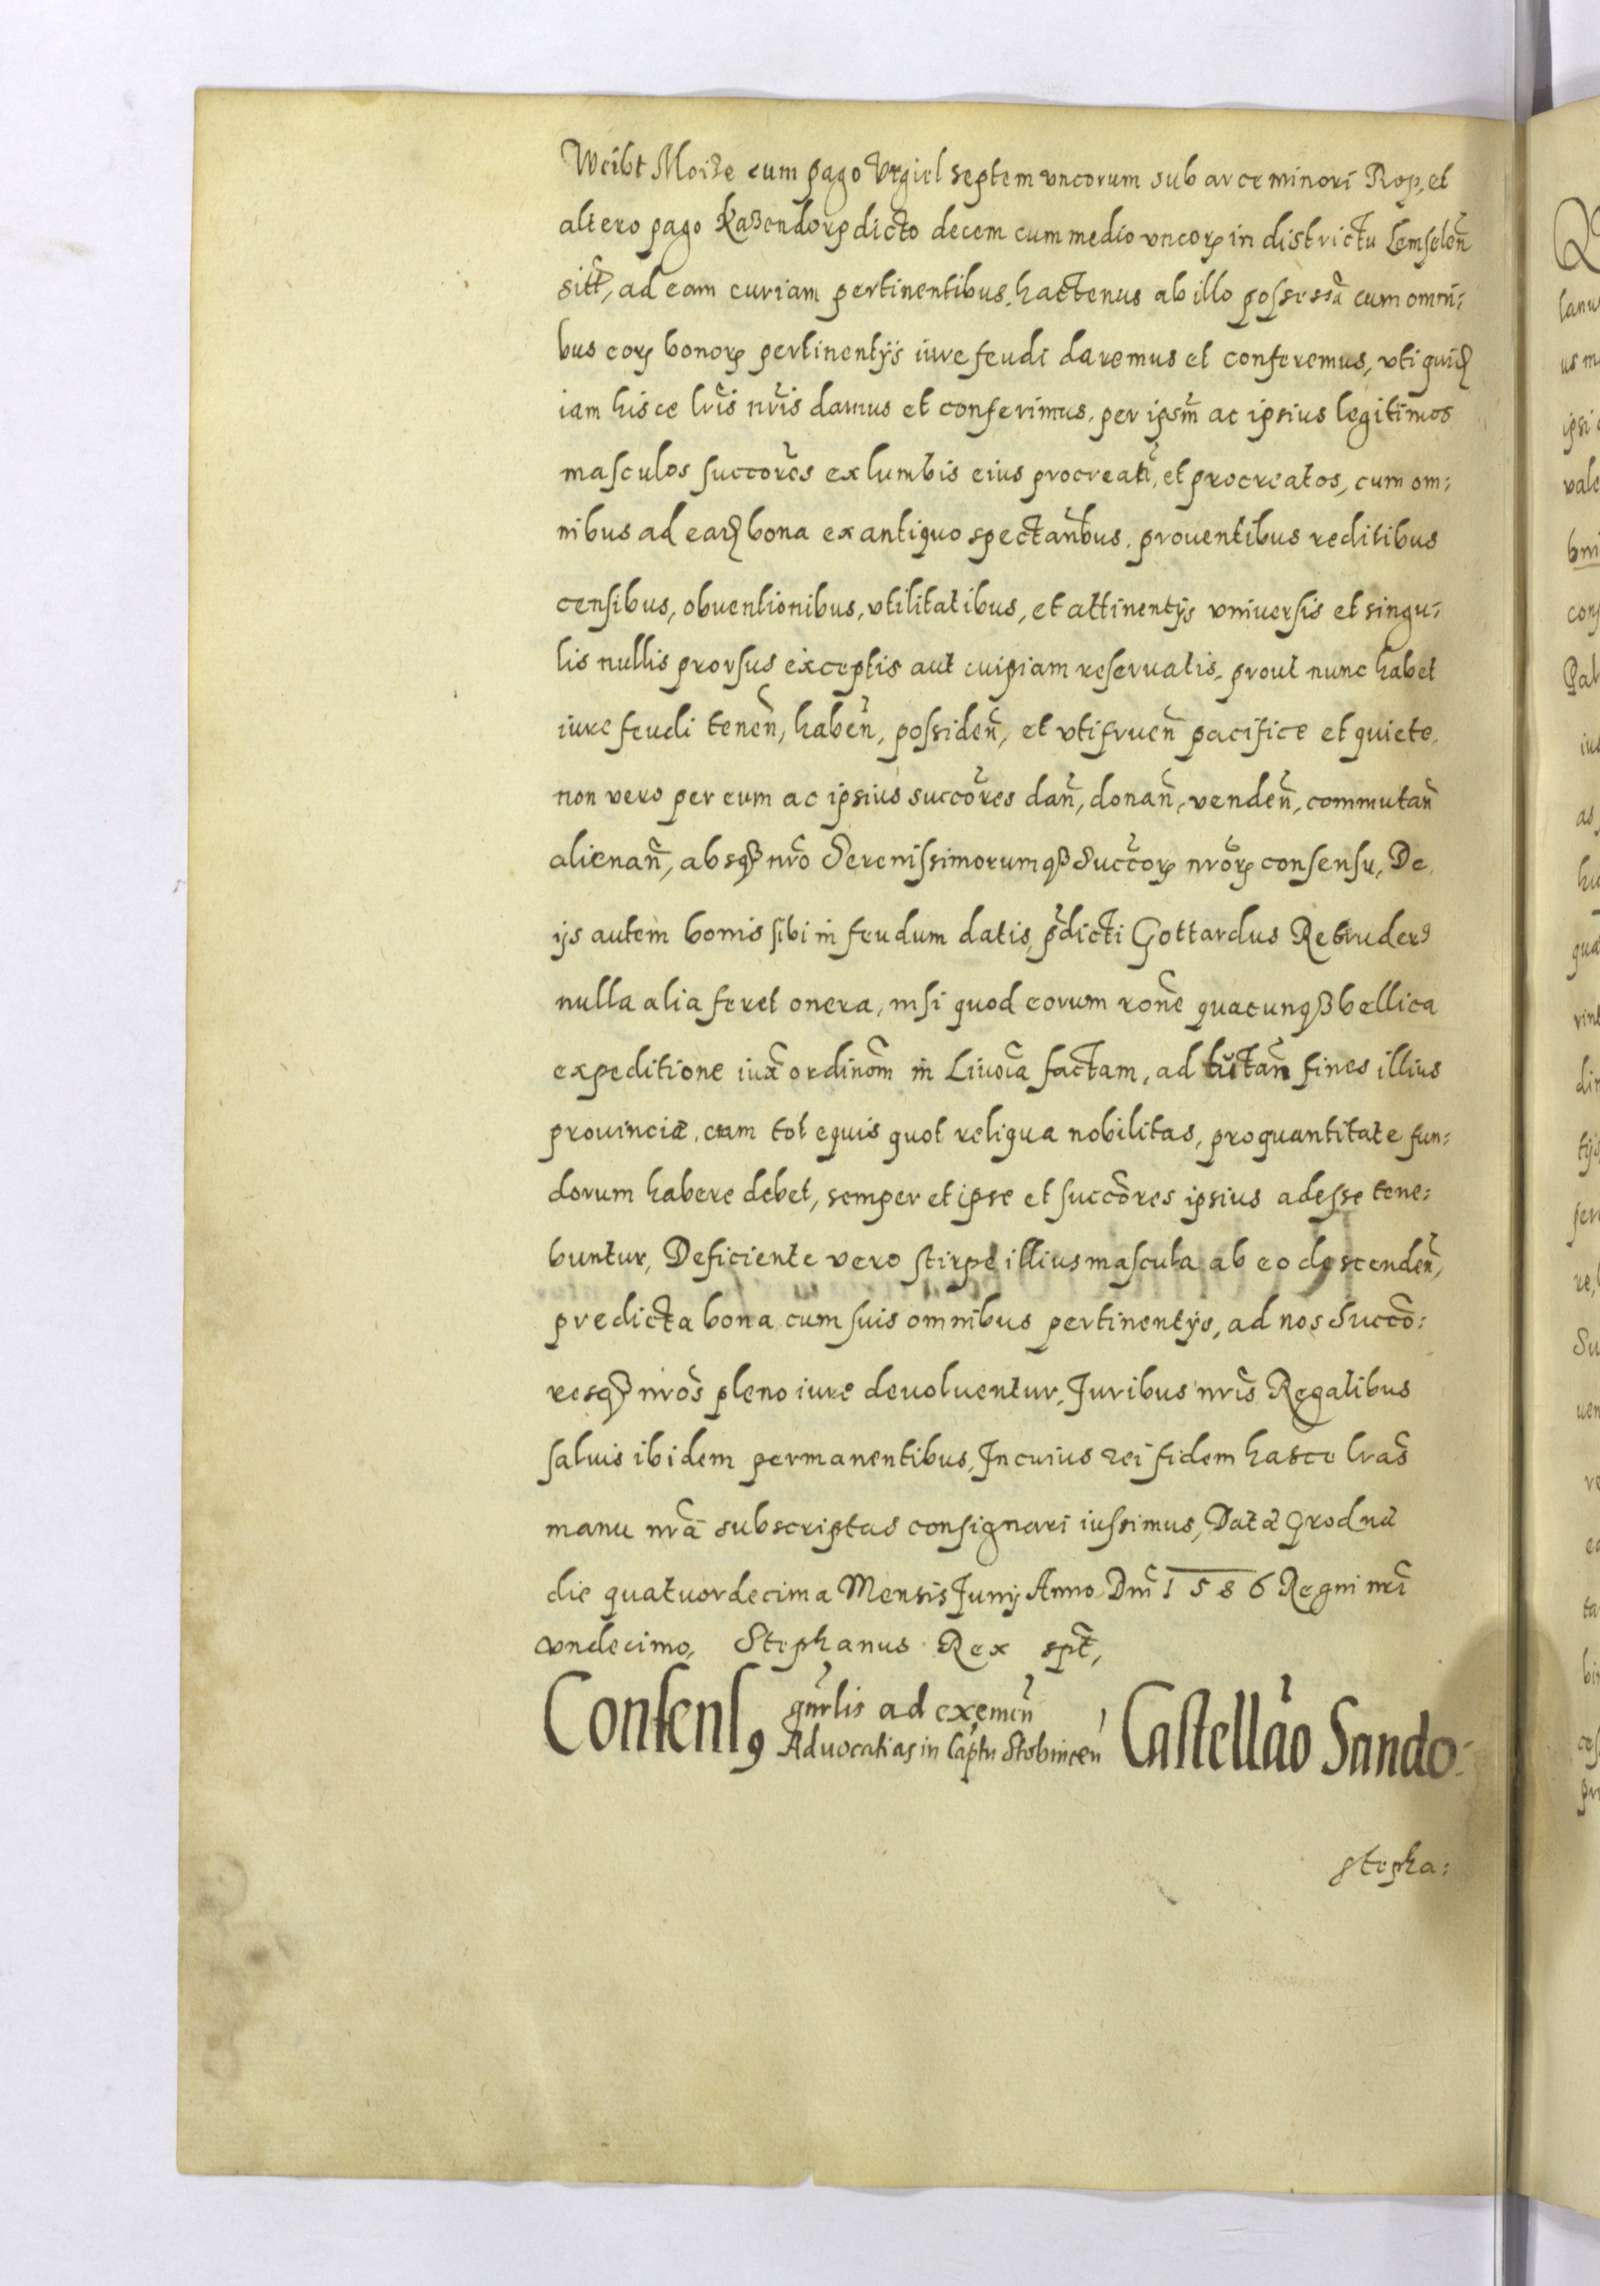 Weibt Moize cum pago Vrgiel septem vncorum sub arce minori Rop, et
altero pago Kazendorp dicto decem cum medio vncorꝝ in districtu Lemselen̄
sitꝭ, ad eam curiam pertinentibus, hactenus ab illo possessã cum omni:
bus eorꝝ bonorꝝ pertinentijs iure feudi daremus et conferemus, vti quidꝫ
iam hisce lrĩs nrĩs damus et conferimus, per ipsm̃ ac ipsius legitimos
masculos succorẽs ex lumbis eius procreatñ, et procreatos, cum om:
nibus ad eadꝫ bona ex antiquo spectañbus, prouentibus reditibus
censibus, obuentionibus, vtilitatibus, et attinentijs vniuersis et singu:
lis nullis prorsus exceptis aut cuipiam reseruatis, prout nunc habet
iure feudi teneñ, habeñ, possideñ, et vtifrueñ pacifice et quiete,
non vero per eum ac ipsius succõres dañ, donañ, vendeñ, commutañ
alienañ, absqꝫ nrõ Serenissimorumqꝫ Succorꝝ nrõrꝝ consensu, De
ijs autem bonis sibi in feudum datis, p̃dicti Gottardus Retruderꝯ
nulla alia feret onera, nisi quod eorum rone quacunqꝫ bellica
expeditione iuxã ordinom̃ in Liuoĩa factam, ad tuitañ fines illius
prouinciæ, cum tot equis quot reliqua nobilitas, pro quantitate fun:
dorum habere debet, semper et ipse et succõres ipsius adesse tene:
buntur, Deficiente vero stirpe illius mascula ab eo descendeñ,
predicta bona cum suis omnibus pertinentijs, ad nos Succõ:
resqꝫ nrõs pleno iure deuoluentur, Juribus nrĩs Regalibus
saluis ibidem permanentibus, In cuius rei fidem hasce lrãs
manu nrã subscriptas consignari iussimus, Datæ Grodnæ
die quatuordecima Mensis Junij Anno Dnĩ 1586 Regni nrĩ
vndecimo, Stephanus Rex spt̃,
Consensꝯ gnr̃lis ad exemeñ Castellão Sando:
Aduocatias in Captu Stobniceñ
Stepha: